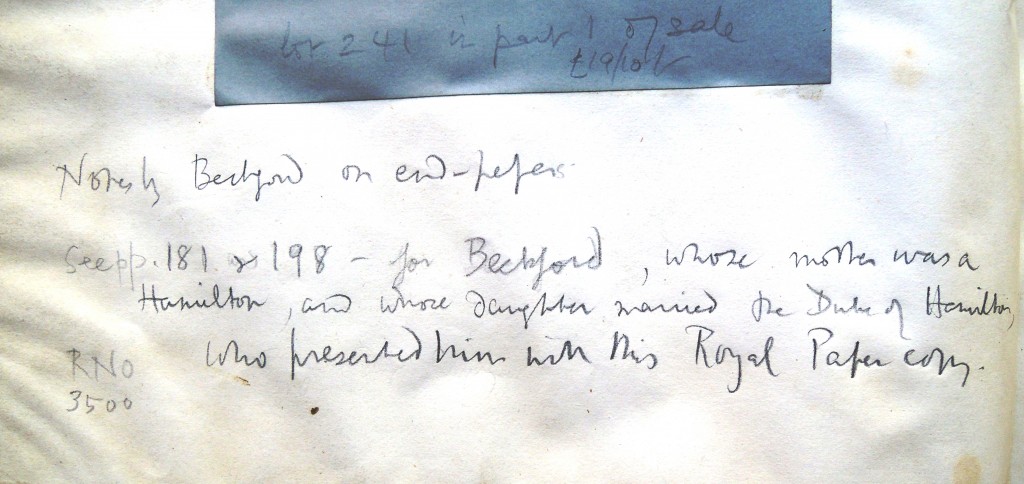 lot 241 in part 1 of sale
£19/10/-
Notes by Beckford on end-papers
See pp. 181 & 198 - for Beckford, whose mother was a
Hamilton, and whose daughter married the Duke of Hamilton,
who presented him with this Royal Paper copy.
RNo
3500